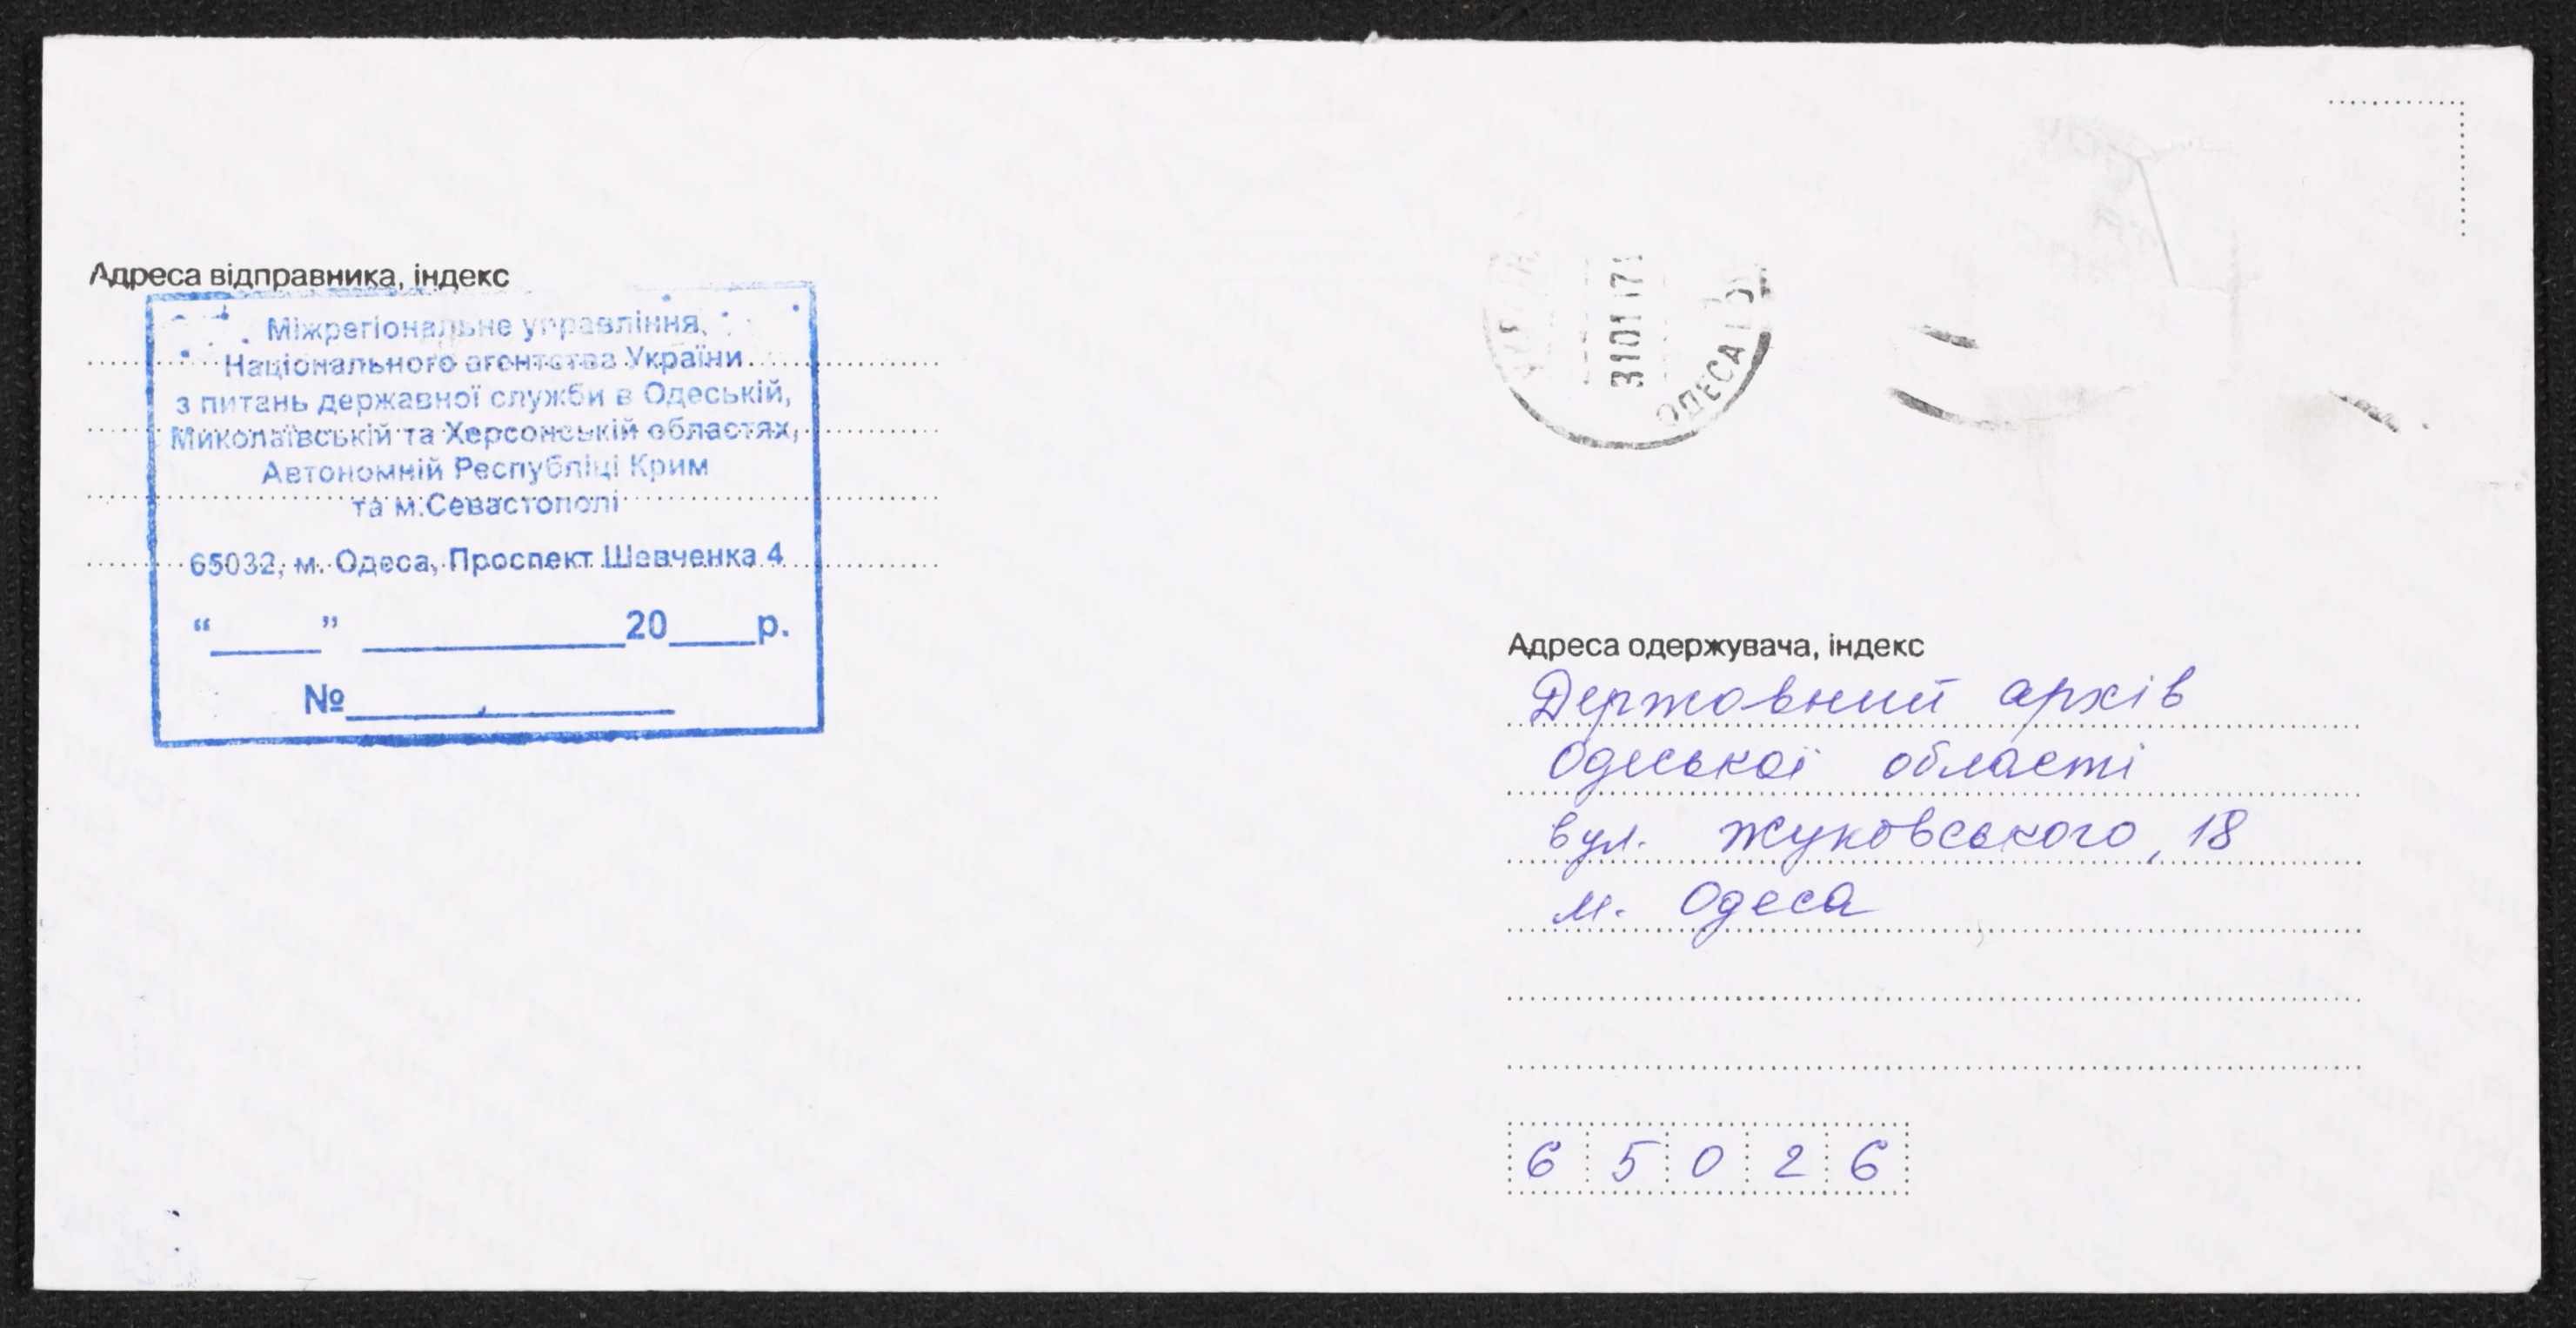 Адреса відправника, індекс
Міжрегіональне управління
Національного агентства України
з питань державної служби в Одеській,
Миколаївській та Херсонській областях,
Автономній Республіці Крим
та м.Севастополі
65032, м. Одеса, Проспект Шевченка 4
“_____” ____________20____р.
№_______________
310117
ОДЕСА
Адреса одержувача, індекс
Державний архів
Одеської області
вул. Жуковського, 18
м. Одеса
65026